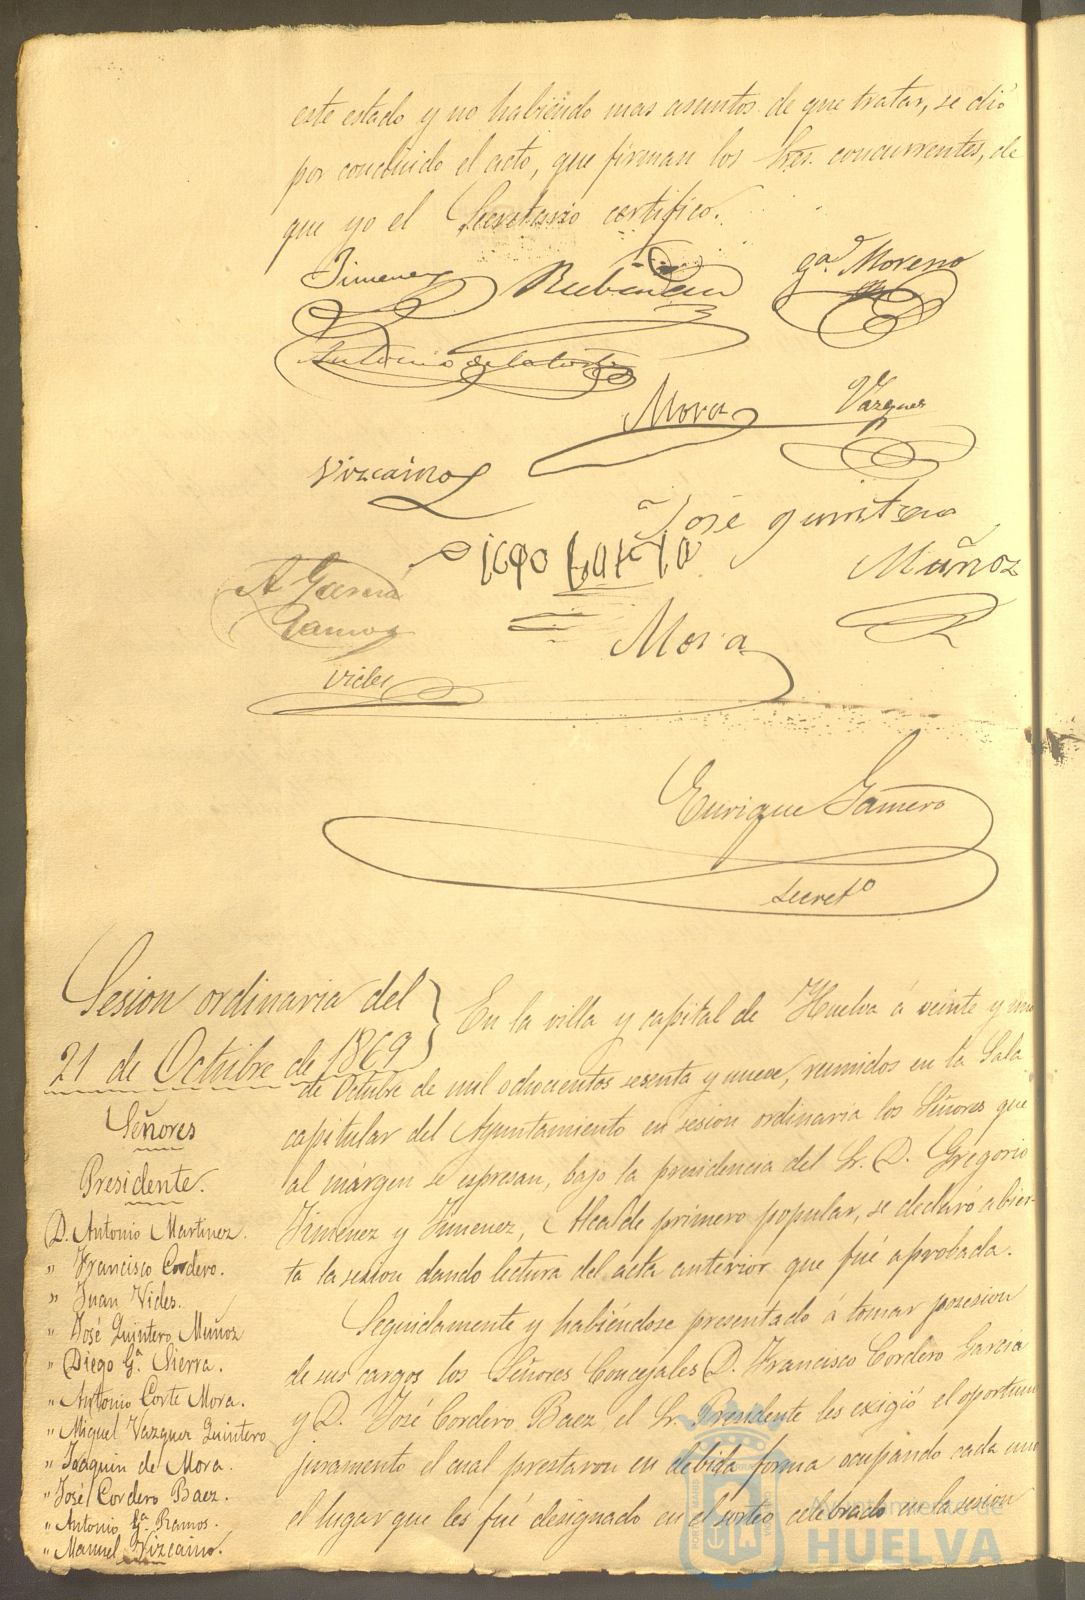 este estado y no habiendo mas asuntos de que tratar, se dió
por concluido el acto, que firman los Sres. concurrentes, de
que yo el Secretario certifico.
Jimenez
Gª Moreno
Mora Vazquez
Vizcaino
José Quintero
Muñoz
Diego Garcia
A. Garcia
Ramos
Mora
Vides
Enrique Gamero
Secretº
Sesion ordinaria del
21 de Octubre de 1869
Señores
Presidente.
D. Antonio Martinez.
" Francisco Cordero.
" Juan Vides.
" José Quintero Muñoz
" Diego Gª Sierra.
" Antonio Corte Mora.
" Miguel Vazquez Quintero
" Joaquin de Mora.
" José Cordero Baez.
" Antonio Gª Ramos.
" Manuel Vizcaino.
En la villa y capital de Huelva á veinte y uno
de Octubre de mil ochocientos sesenta y nueve, reunidos en la Sala
capitular del Ayuntamiento en sesion ordinaria los Señores que
al márgen se espresan, bajo la presidencia del Sr. D. Gregorio
Jimenez y Jimenez, Alcalde primero popular, se declaró abier-
ta la sesion dando lectura del acta anterior que fué aprobada.
Seguidamente y habiéndose presentado á tomar posesion
de sus cargos los Señores Concejales D. Francisco Cordero Garcia
y D. José Cordero Baez el Sr. Presidente les exigió el oportuno
juramento el cual prestaron en debida forma ocupando cada uno
el lugar que les fué designado en el sorteo celebrado en la sesion
Ayuntamiento de
HUELVA